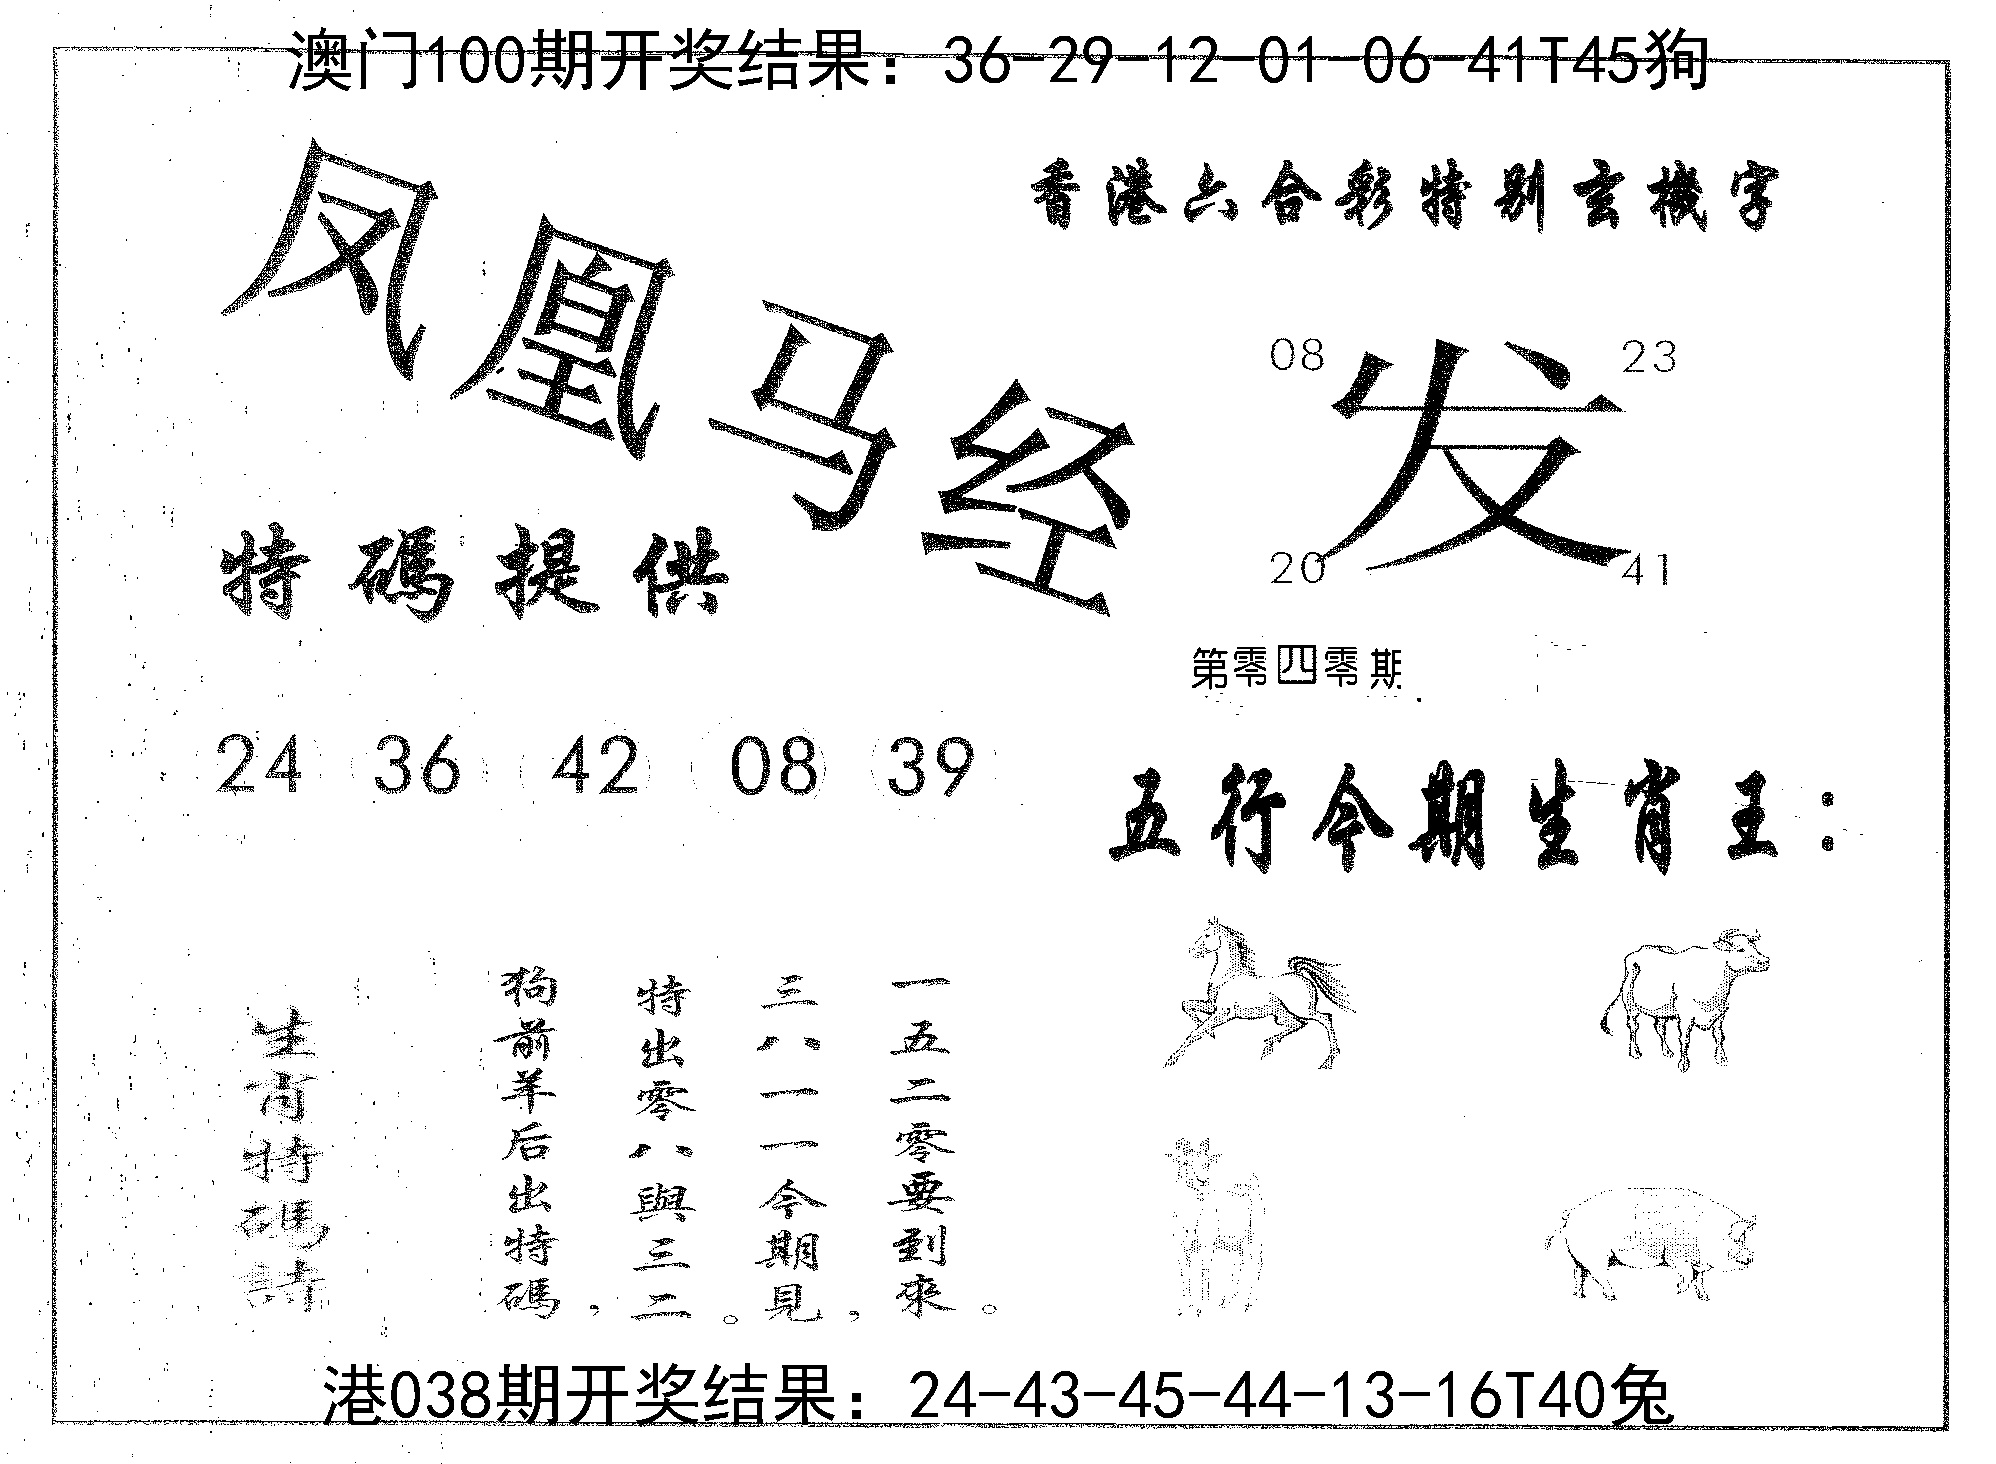 澳门100期开奖结果：36-29-12-01-06-41T45狗
凤凰马经
香港六合彩特别玄機字
08 23
发
20 41
特碼提供
第零四零期
24 36 42 08 39
五行今期生肖王：
生肖特碼詩
狗前羊后出特碼，
特出零八與三二。
三八一一今期見，
一五二零要到來。
港038期开奖结果：24-43-45-44-13-16T40兔